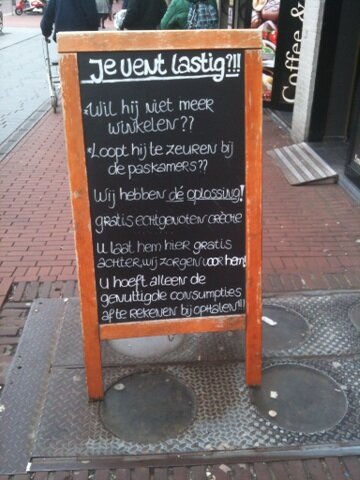 Je vent lastig?!!
Wil hij niet meer
winkelen??
Loopt hij te zeuren bij
de paskamers??
Wij hebben dé oplossing!
gratis echtgenoten crèche
u laat hem hier gratis
achter, wij zorgen voor hem!
u hoeft alleen de
genuttigde consumpties
af te rekenen bij ophalen!!!
Coffee &